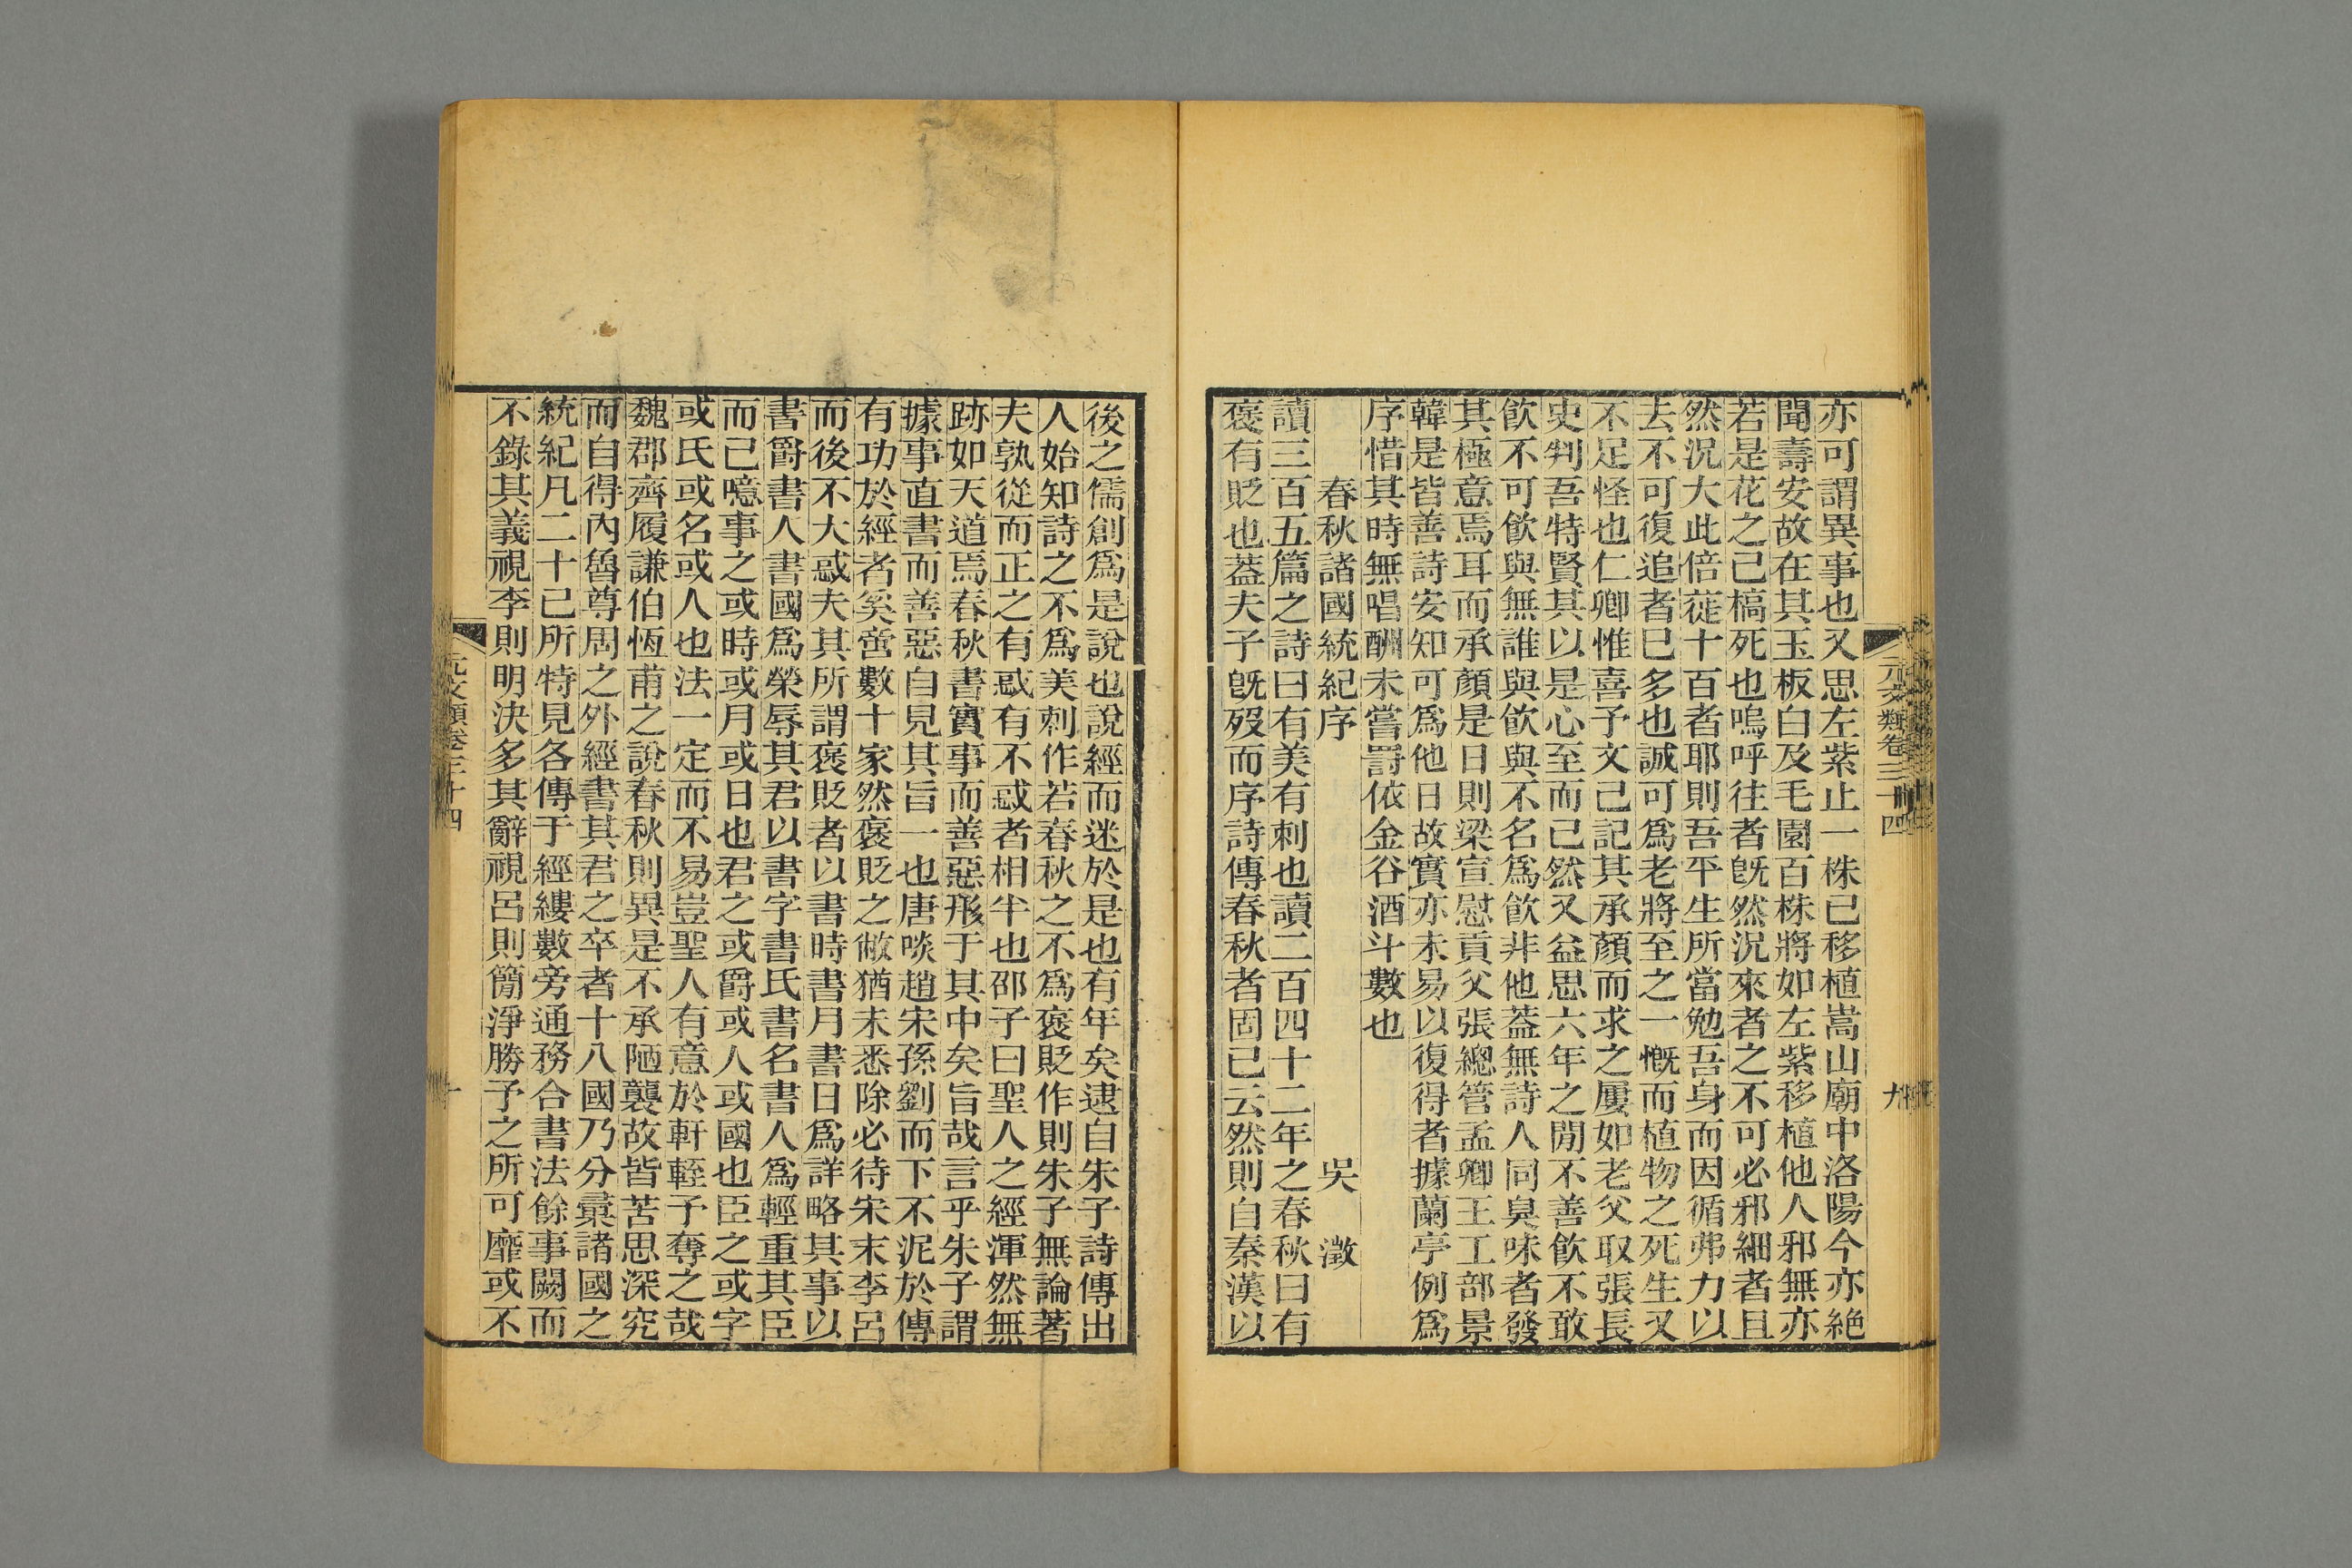 元文類卷三十四
九
亦可謂異事也又思左紫止一株已移植嵩山廟中洛陽今亦絕
聞壽安故在其玉板白及毛園百株將如左紫移植他人邪無亦
若是花之已槁死也嗚呼往者旣然況來者之不可必邪細者且
然況大此倍蓰十百者耶則吾平生所當勉吾身而因循弗力以
去不可復追者巳多也誠可爲老將至之一慨而植物之死生又
不足怪也仁卿惟喜予文己記其承顏而求之屢如老父取張長
史判吾特賢其以是心至而已然又益思六年之閒不善飲不敢
飲不可飲與無誰與飲與不名爲飲非他葢無詩人同臭味者發
其極意焉耳而承顏是日則梁宣慰貢父張總管孟卿王工部景
韓是皆善詩安知可爲他日故實亦未易以復得者據蘭亭例爲
序惜其時無唱酬未嘗罰依金谷酒斗數也
春秋諸國統紀序　吳澂
讀三百五篇之詩曰有美有刺也讀二百四十二年之春秋曰有
褒有貶也葢夫子旣歿而序詩傳春秋者固已云然則自秦漢以
後之儒創爲是說也說經而迷於是也有年矣逮自朱子詩傳出
人始知詩之不爲美刺作若春秋之不爲褒貶作則朱子無論著
夫孰從而正之有惑有不惑者相半也邵子曰聖人之經渾然無
跡如天道焉春秋書實事而善惡形于其中矣旨哉言乎朱子謂
據事直書而善惡自見其旨一也唐啖趙宋孫劉而下不泥於傳
有功於經者奚啻數十家然褒貶之敝猶未悉除必待宋末李呂
而後不大惑夫其所謂褒貶者以書時書月書日爲詳略其事以
書爵書人書國爲榮辱其君以書字書氏書名書人爲輕重其臣
而已噫事之或時或月或日也君之或爵或人或國也臣之或字
或氏或名或人也法一定而不易豈聖人有意於軒輊予奪之哉
魏郡齊履謙伯恆甫之說春秋則異是不承陋襲故皆苦思深究
而自得內魯尊周之外經書其君之卒者十八國乃分彙諸國之
統紀凡二十己所特見各傳于經縷數旁通務合書法餘事闕而
不錄其義視李則明決多其辭視呂則簡淨勝予之所可靡或不
元文類卷三十四